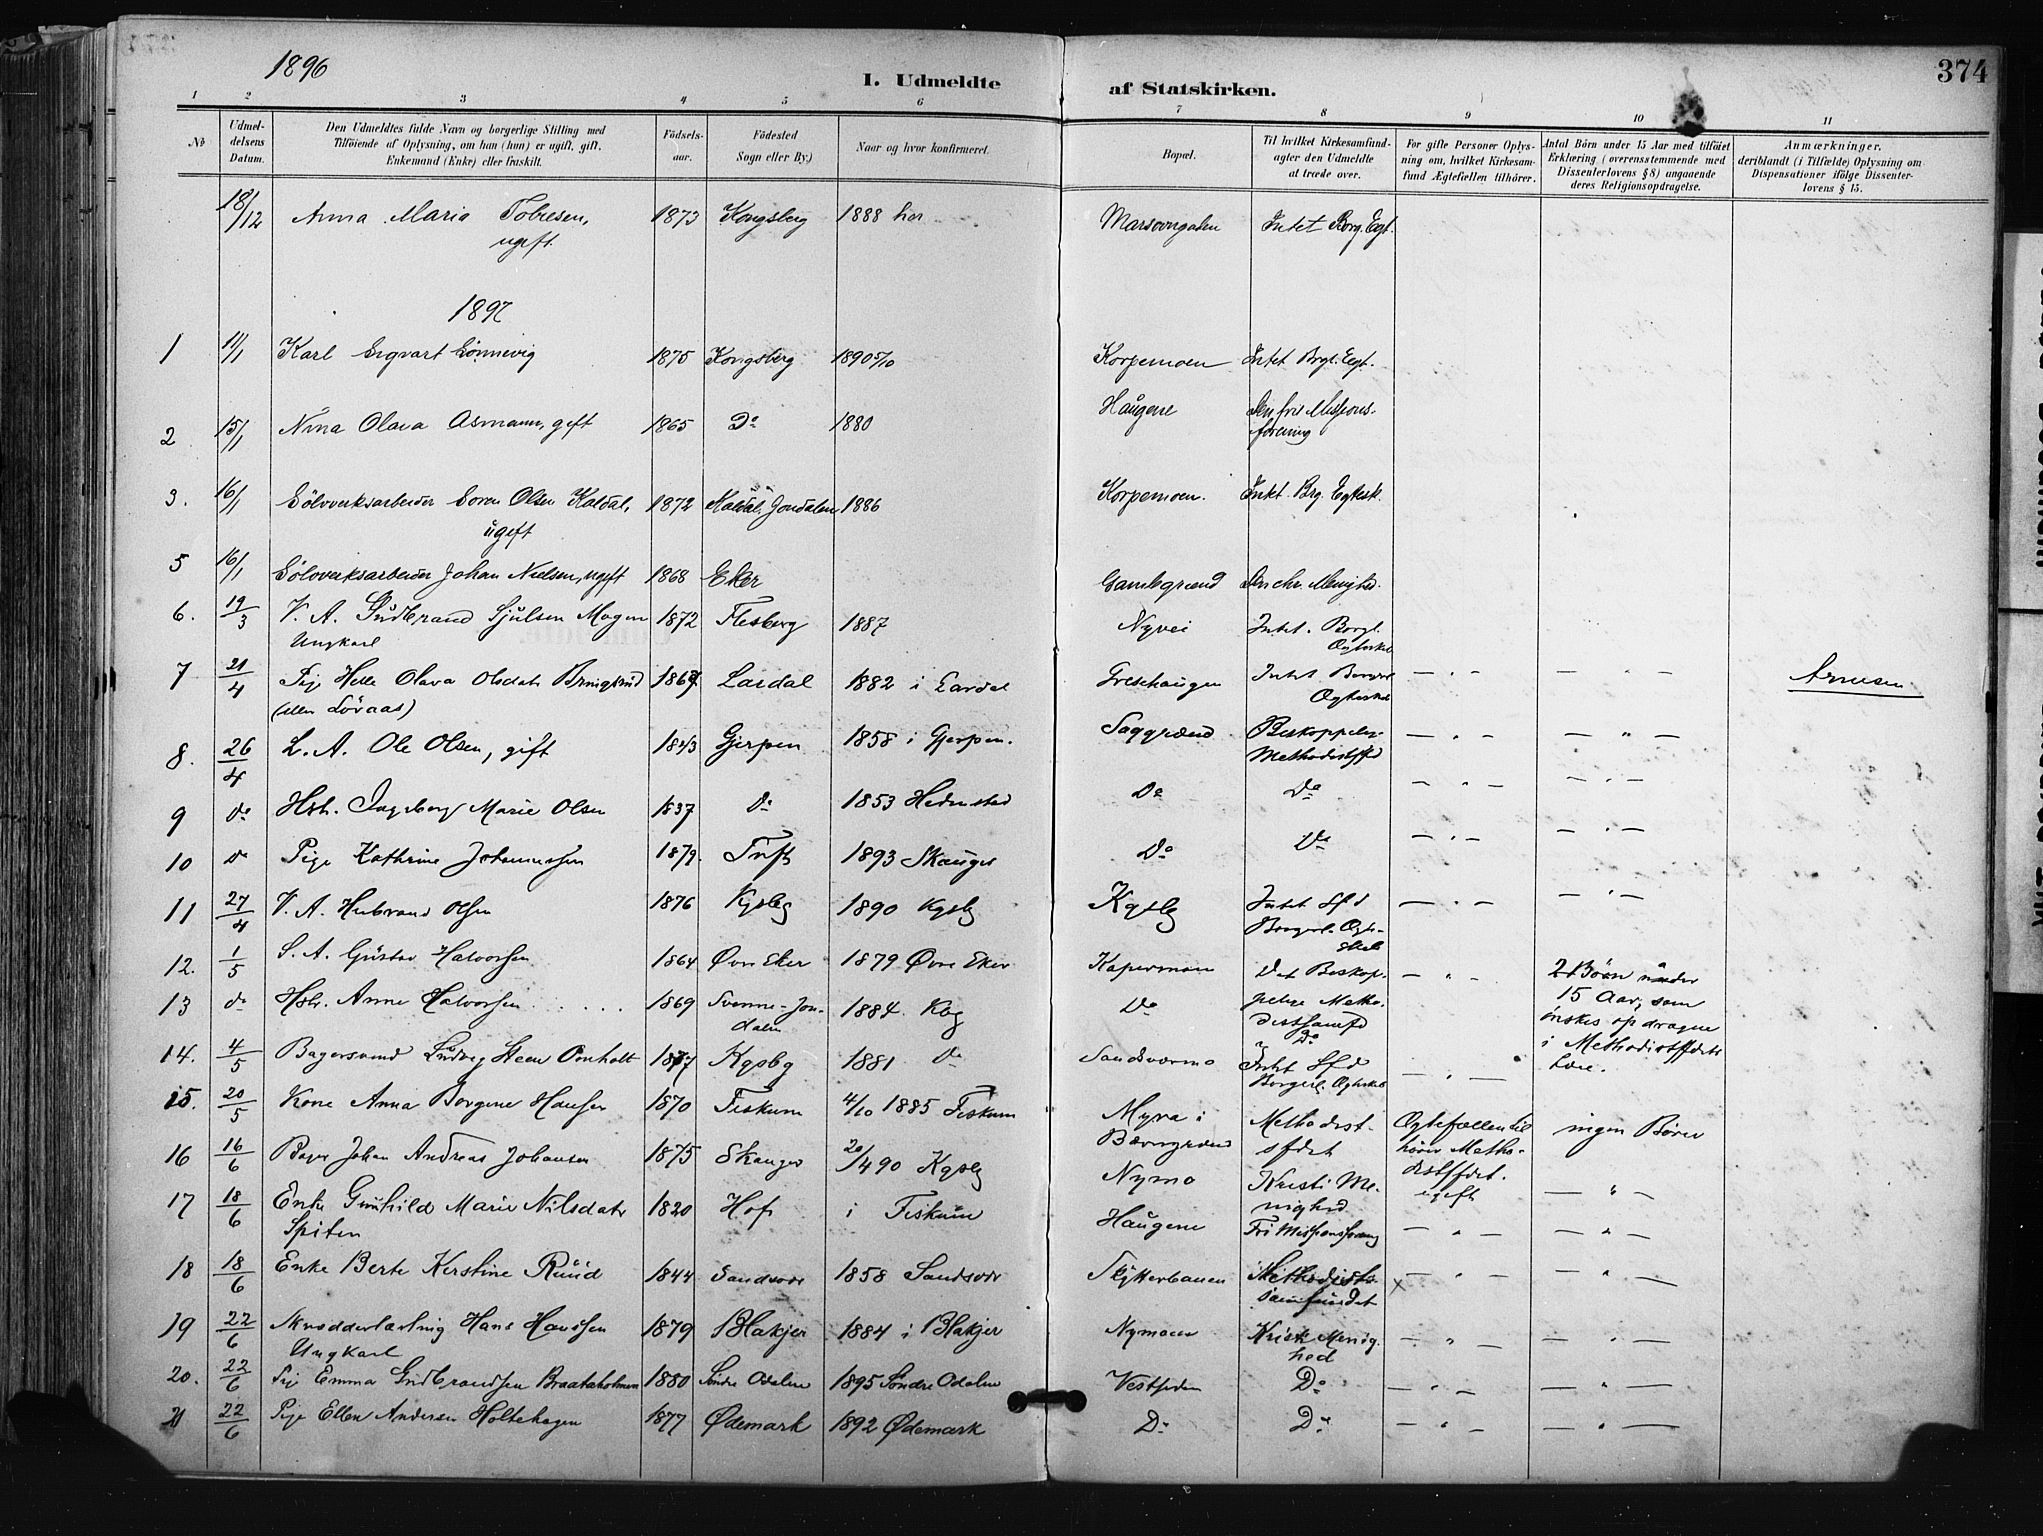 1896
1. Udmeldte af Statskirken.
374
1 2 3 4 5 6 7 8 9 10 11
No
Udmeldelsens Datum.
Den Udmeldtes fulde Navn og borgerlige Stilling med Tilföiende af Oplysning, om han (hun) er ugift, gift, Enkemand (Enke) eller fraskilt.
Födsels-aar.
Födested Sogn eller By.)
Naar og hvor konfirmeret.
Bopæl.
Til hvilket Kirkesamfund agter den Udmeldte at træde over.
For gifte Personer Oplysning om, hvilket Kirkesamfund Ægtefællen tilhörer.
Antal Börn under 15 Aar med tilföiet Erklæring (overensstemmende med Dissenterlovens § 8) angaaende deres Religionsopdragelse.
Anmærkninger, deriblandt (i Tilfælde) Oplysning om Dispensationer ifölge Dissenterlovens § 15.
18/12 Anna Maria Tobiesen, ugift 1873 Kongsberg 1888 her Intet Borg. Egt.
1897
1 11/1 Karl 1875 Kongsberg 1890 5/10 Korpemoen Intet Brgl. Egt.
2 15/1 Nina Olava Asmann, gift 1865 Do 1880 Haugene Den fri Missions-forening
3. 16/1 Sölvverksarbeider Soren Olsen Kaldal, ugift 1872 Kaldal, Jondalen 1886 Korpemoen. Intet. Brg. Egtesk.
5 16/1 Sölvverksarbeider Johan Nielsen, ugift 1868 Eker Gamlegrænd Den chr. Menighd.
6. 19/3 V. A. Gudbrand Sjulsen Mogen Ungkarl 1872 Flesberg 1887 Nyvei Intet. Borgl. Ægteskb
7 21/4 Pige Helle Olava Olsdatr (eller Löraas) Lardal 1882 i Lardal Intet Borgerl Ægteskb — " — — " — Arnesen
8. 26/4 L. A. Ole Olsen, gift 1843 Gjerpen 1858 i Gjerpen. Saggrænd Biskoppelig Methodistsfd — " — — " —
9 do Hstr. Ingeborg Marie Olsen 1837 do 1853 Hedrstad Do Do — " — — " —
10 do Pige Kathrine Johannessen 1879. Tuft 1893 Skauger Do Do — " — — " —
11 27/4 V. A. Herbrand Olsen 1876 Kgsbg 1890 Kgsbg Kgsbg Intet Sfd Borgerl. Ægte-skab — " — — " —
12. 1/5 S. A. Gustav Halvorsen 1864 Øvre Eker 1879 Øvre Eker Kapermoen Det Biskop-pelige Metho-distsamfd — " — 2 Børn under 15 Aar, som ønskes opdragne i Methodistsfdets Lære.
13 do Hstr. Anne Halvorsen 1869 Svenne-Jon-dalen 1884. Kbg Do Do
14. 4/5 Bagersvend Ludvig Steen Omholt Kgsbg 1881 do Sandsværmo Intet Sfd Borgerl. Ægteskb — " —
15. 20/5 Kone Anna Borgine Hansen 1870 Fiskum 4/10 1885 Fiskum Myra i Methodist-sfdet Ægtefællen til-hører Metho-distsfdet. ingen Børn
16 16/6 Bager Johan Andreas Johansen 1875 Skauger 20/4 90 Kgsbg Nymo Kristi Me-nighed ugift — " —
17 18/6 Enke Gunhild Marie Nilsdatr Spiten 1820 Hof i Fiskum Haugene Fri — " — — " —
18 18/6 Enke Berte Kerstine Ruud 1844 Sandsvær 1858 Sandsvær Skytterbanen Methodist-samfundet — " — — " —
19 22/6 Skrædderlærling Hans Hansen Ungkarl 1879 Blakjer 1884 i Blakjer Nymoen Kristi Menig-hed — " — — " —
20. 22/6 Pige Emma Gudbrandsen Braataholmen 1880 Søndre Odalen 1895 Søndre Odalen Vestsiden Do — " — — " —
21 22/6 Pige Ellen Andersen Holtehagen 1877 Ødemark 1892 Ødemark Do Do — " — — " —